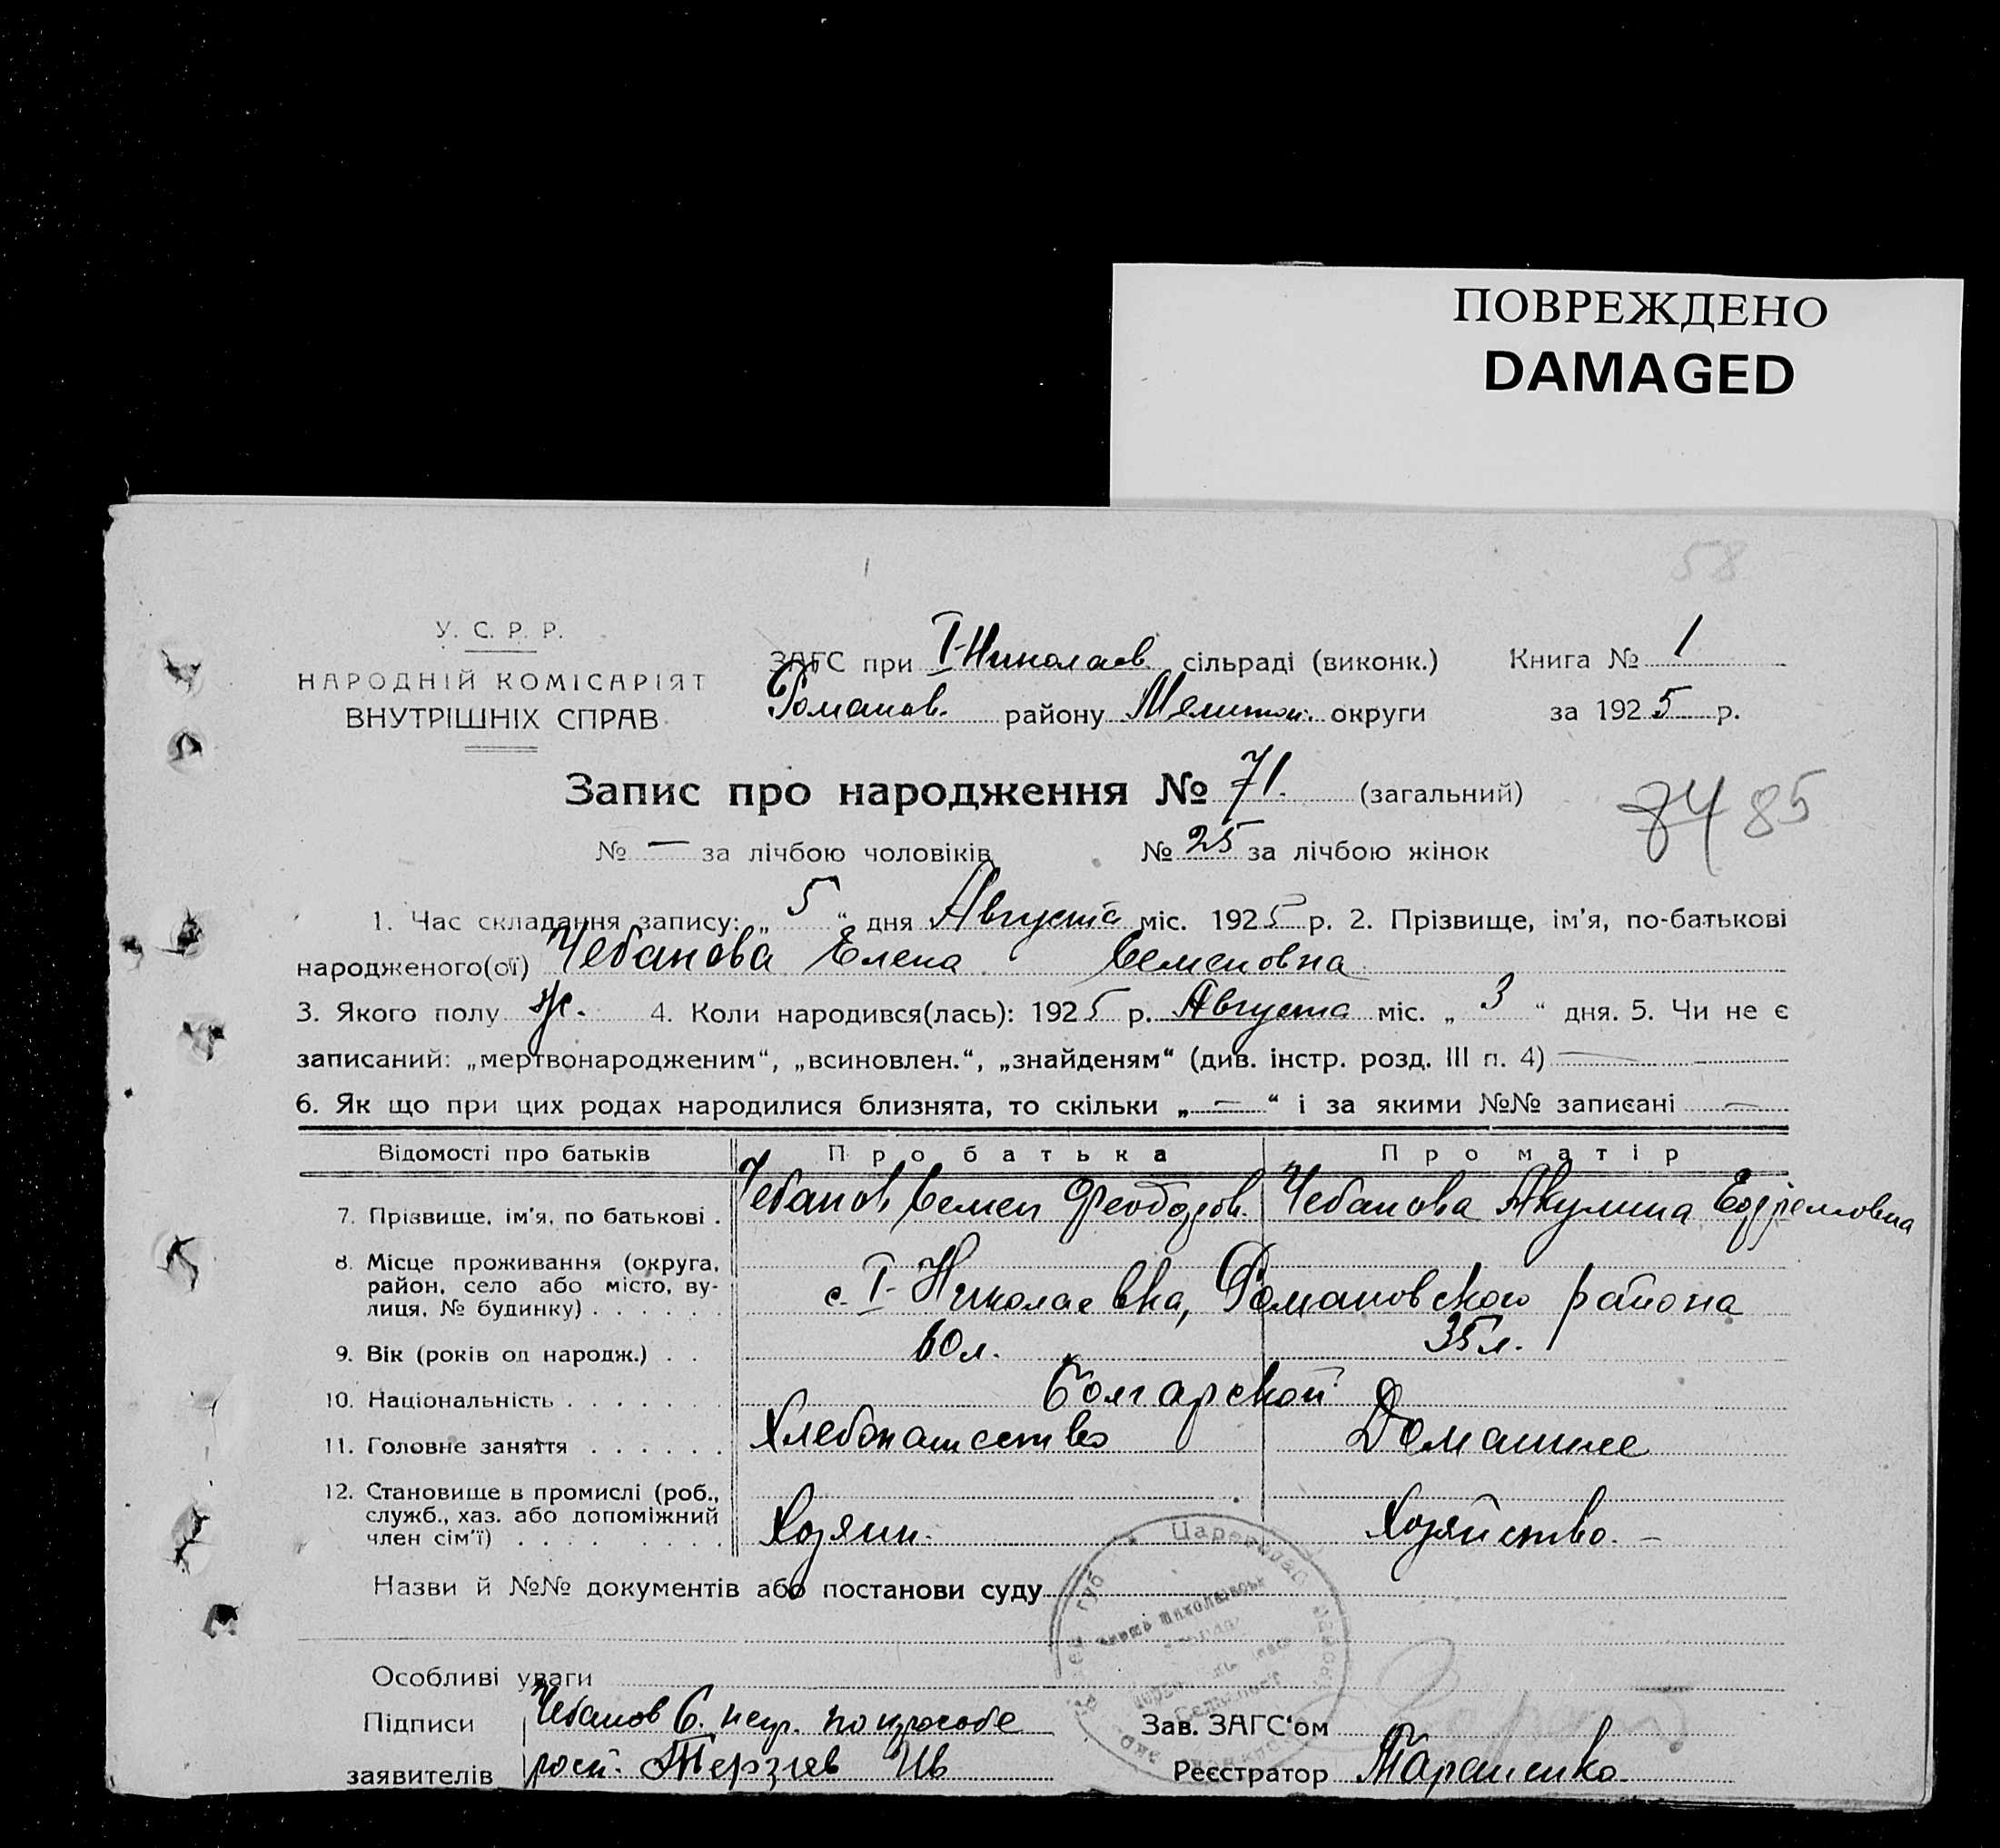 ПОВРЕЖДЕНО
DAMAGED
58
У. С. Р. Р.
НАРОДНІЙ КОМІСАРІЯТ
ВНУТРІШНІХ СПРАВ
ЗАГС при I-Николаев. сільраді (виконк.) Книга № 1
Романов. району Мелитоп. округи за 1925 р.
Запис про народження № 71. (загальний)
84 85
№ — за лічбою чоловіків № 25 за лічбою жінок
1. Час складання запису: „ 5 “ дня Августа міс. 1925 р. 2. Прізвище, ім'я, по-батькові
народженого(ої) Чебанова Елена Семеновна
3. Якого полу ж. 4. Коли народився(лась): 1925 р. Августа міс. „ 3 “ дня. 5. Чи не є
записаний: „мертвонародженим“, „всиновлен.“, „знайденям“ (див. інстр. розд. III п. 4) —
6. Як що при цих родах народилися близнята, то скільки „ — “ і за якими №№ записані —
Відомості про батьків Про батька Про матір
7. Прізвище, ім'я, по батькові . Чебанов Семен Феодоров. Чебанова Акулина Ефремовна
8. Місце проживання (округа,
район, село або місто, ву-
лиця, № будинку) . . . . . . с. I-Николаевка, Романовского района
9. Вік (років од народж.) . . 60 л. 35 л.
10. Національність . . . . . . Болгарской
11. Головне заняття . . . . . . Хлебопашество Домашнее
12. Становище в промислі (роб.,
служб., хаз. або допоміжний
член сім'ї) . . . . . . . . Хозяин. Хозяйство. —
Назви й №№ документів або постанови суду
Особливі уваги
Підписи Чебанов С. негр. по просьбе
заявителів росп. Терзиев Ив
Зав. ЗАГС‘ом
Реєстратор Тараненко.